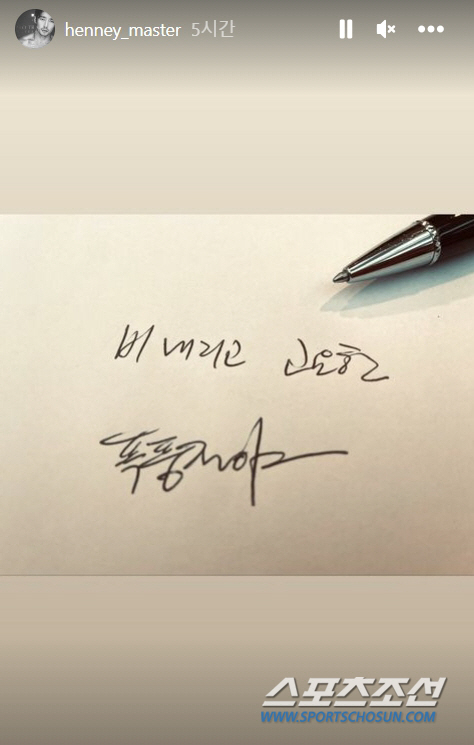 henney_master 5시간
비 내리고 고요한
폭풍전야
스포츠조선
WWW.SPORTSCHOSUN.COM